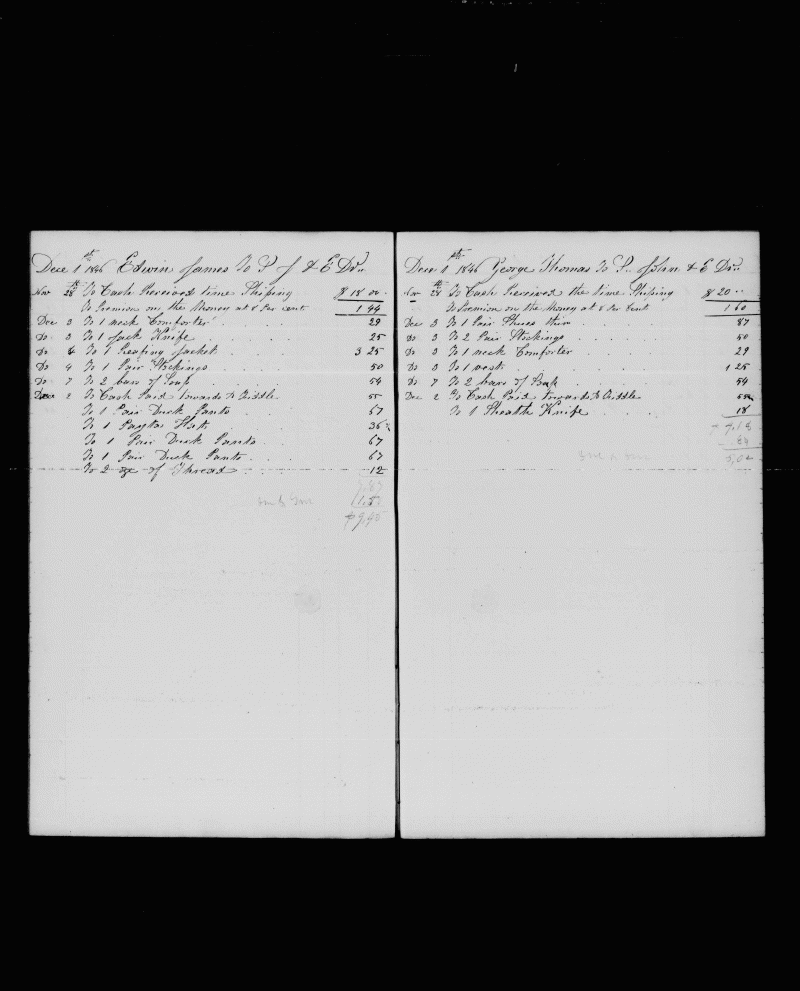 Dece 1st 1846 Edwin James To P J & E Dr
Nov 28th To Cash Received time Shiping $ 18 00
To Premion on the Money at 8 Per Cent 1 44
Dec 3 To 1 neck Comforter 29
Do 3 To 1 Jack Knife 25
Do 4 To 1 Reafing Jacket 3 25
Do 4 To 1 Pair Stockings 50
Do 7 To 2 bars of Soap 54
Dec 2 To Cash Paid towards A Fiddle 55
To 1 Pair Duck Pants 67
To 1 Hat 36
To 1 Pair Duck Pants 67
To 1 Pair Duck Pants 67
To 2 of Thread 12
7.67
1.57
$9,95
Dece 1st 1846 George Thomas To P. John & E Dr
Nov 28th To Cash Received the time Shiping $ 20
To Premion on the Money at 8 Per Cent 1 60
Dec 3 To 1 Pair Shues thin 87
Do 3 To 2 Pair Stockings 50
Do 3 To 1 neck Comforter 29
Do 3 To 1 vest 1 25
Do 7 To 2 bars of Soap 54
Dec 2 To Cash Paid towards A Fiddle 55
To 1 Sheath Knife 18